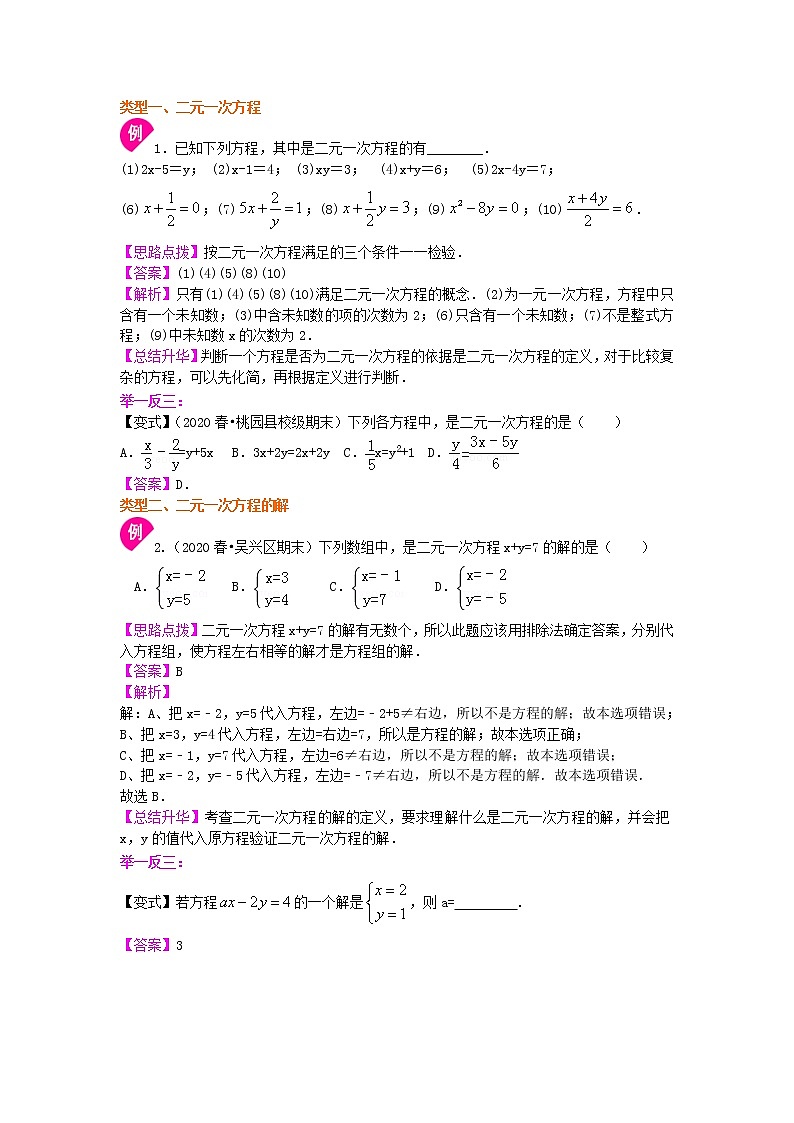 类型一、二元一次方程
例 1．已知下列方程，其中是二元一次方程的有________．
(1)2x-5＝y； (2)x-1＝4； (3)xy＝3； (4)x+y＝6； (5)2x-4y＝7；
(6) $x+\frac{1}{2}=0$；(7) $5x+\frac{2}{y}=1$；(8) $x+\frac{1}{2}y=3$；(9) $x^2-8y=0$；(10) $\frac{x+4y}{2}=6$．
【思路点拨】按二元一次方程满足的三个条件一一检验．
【答案】(1)(4)(5)(8)(10)
【解析】只有(1)(4)(5)(8)(10)满足二元一次方程的概念．(2)为一元一次方程，方程中只
含有一个未知数；(3)中含未知数的项的次数为 2；(6)只含有一个未知数；(7)不是整式方
程；(9)中未知数 x 的次数为 2．
【总结升华】判断一个方程是否为二元一次方程的依据是二元一次方程的定义，对于比较复
杂的方程，可以先化简，再根据定义进行判断．
举一反三：
【变式】（2020 春•桃园县校级期末）下列各方程中，是二元一次方程的是（　　）
A．$\frac{x}{3}-\frac{2}{y}$=y+5x B．3x+2y=2x+2y C．$\frac{1}{5}$x=y²+1 D．$\frac{y}{4}=\frac{3x-5y}{6}$
【答案】D．
类型二、二元一次方程的解
例 2.（2020 春•吴兴区期末）下列数组中，是二元一次方程 x+y=7 的解的是（　　）
A．$\begin{cases}x=-2\\y=5\end{cases}$ B．$\begin{cases}x=3\\y=4\end{cases}$ C．$\begin{cases}x=-1\\y=7\end{cases}$ D．$\begin{cases}x=-2\\y=-5\end{cases}$
【思路点拨】二元一次方程 x+y=7 的解有无数个，所以此题应该用排除法确定答案，分别代
入方程组，使方程左右相等的解才是方程组的解．
【答案】B
【解析】
解：A、把 x=﹣2，y=5 代入方程，左边=﹣2+5≠右边，所以不是方程的解；故本选项错误；
B、把 x=3，y=4 代入方程，左边=右边=7，所以是方程的解；故本选项正确；
C、把 x=﹣1，y=7 代入方程，左边=6≠右边，所以不是方程的解；故本选项错误；
D、把 x=﹣2，y=﹣5 代入方程，左边=﹣7≠右边，所以不是方程的解．故本选项错误．
故选 B．
【总结升华】考查二元一次方程的解的定义，要求理解什么是二元一次方程的解，并会把
x，y 的值代入原方程验证二元一次方程的解．
举一反三：
【变式】若方程 $ax-2y=4$ 的一个解是 $\begin{cases}x=2\\y=1\end{cases}$，则 a=_________．
【答案】3